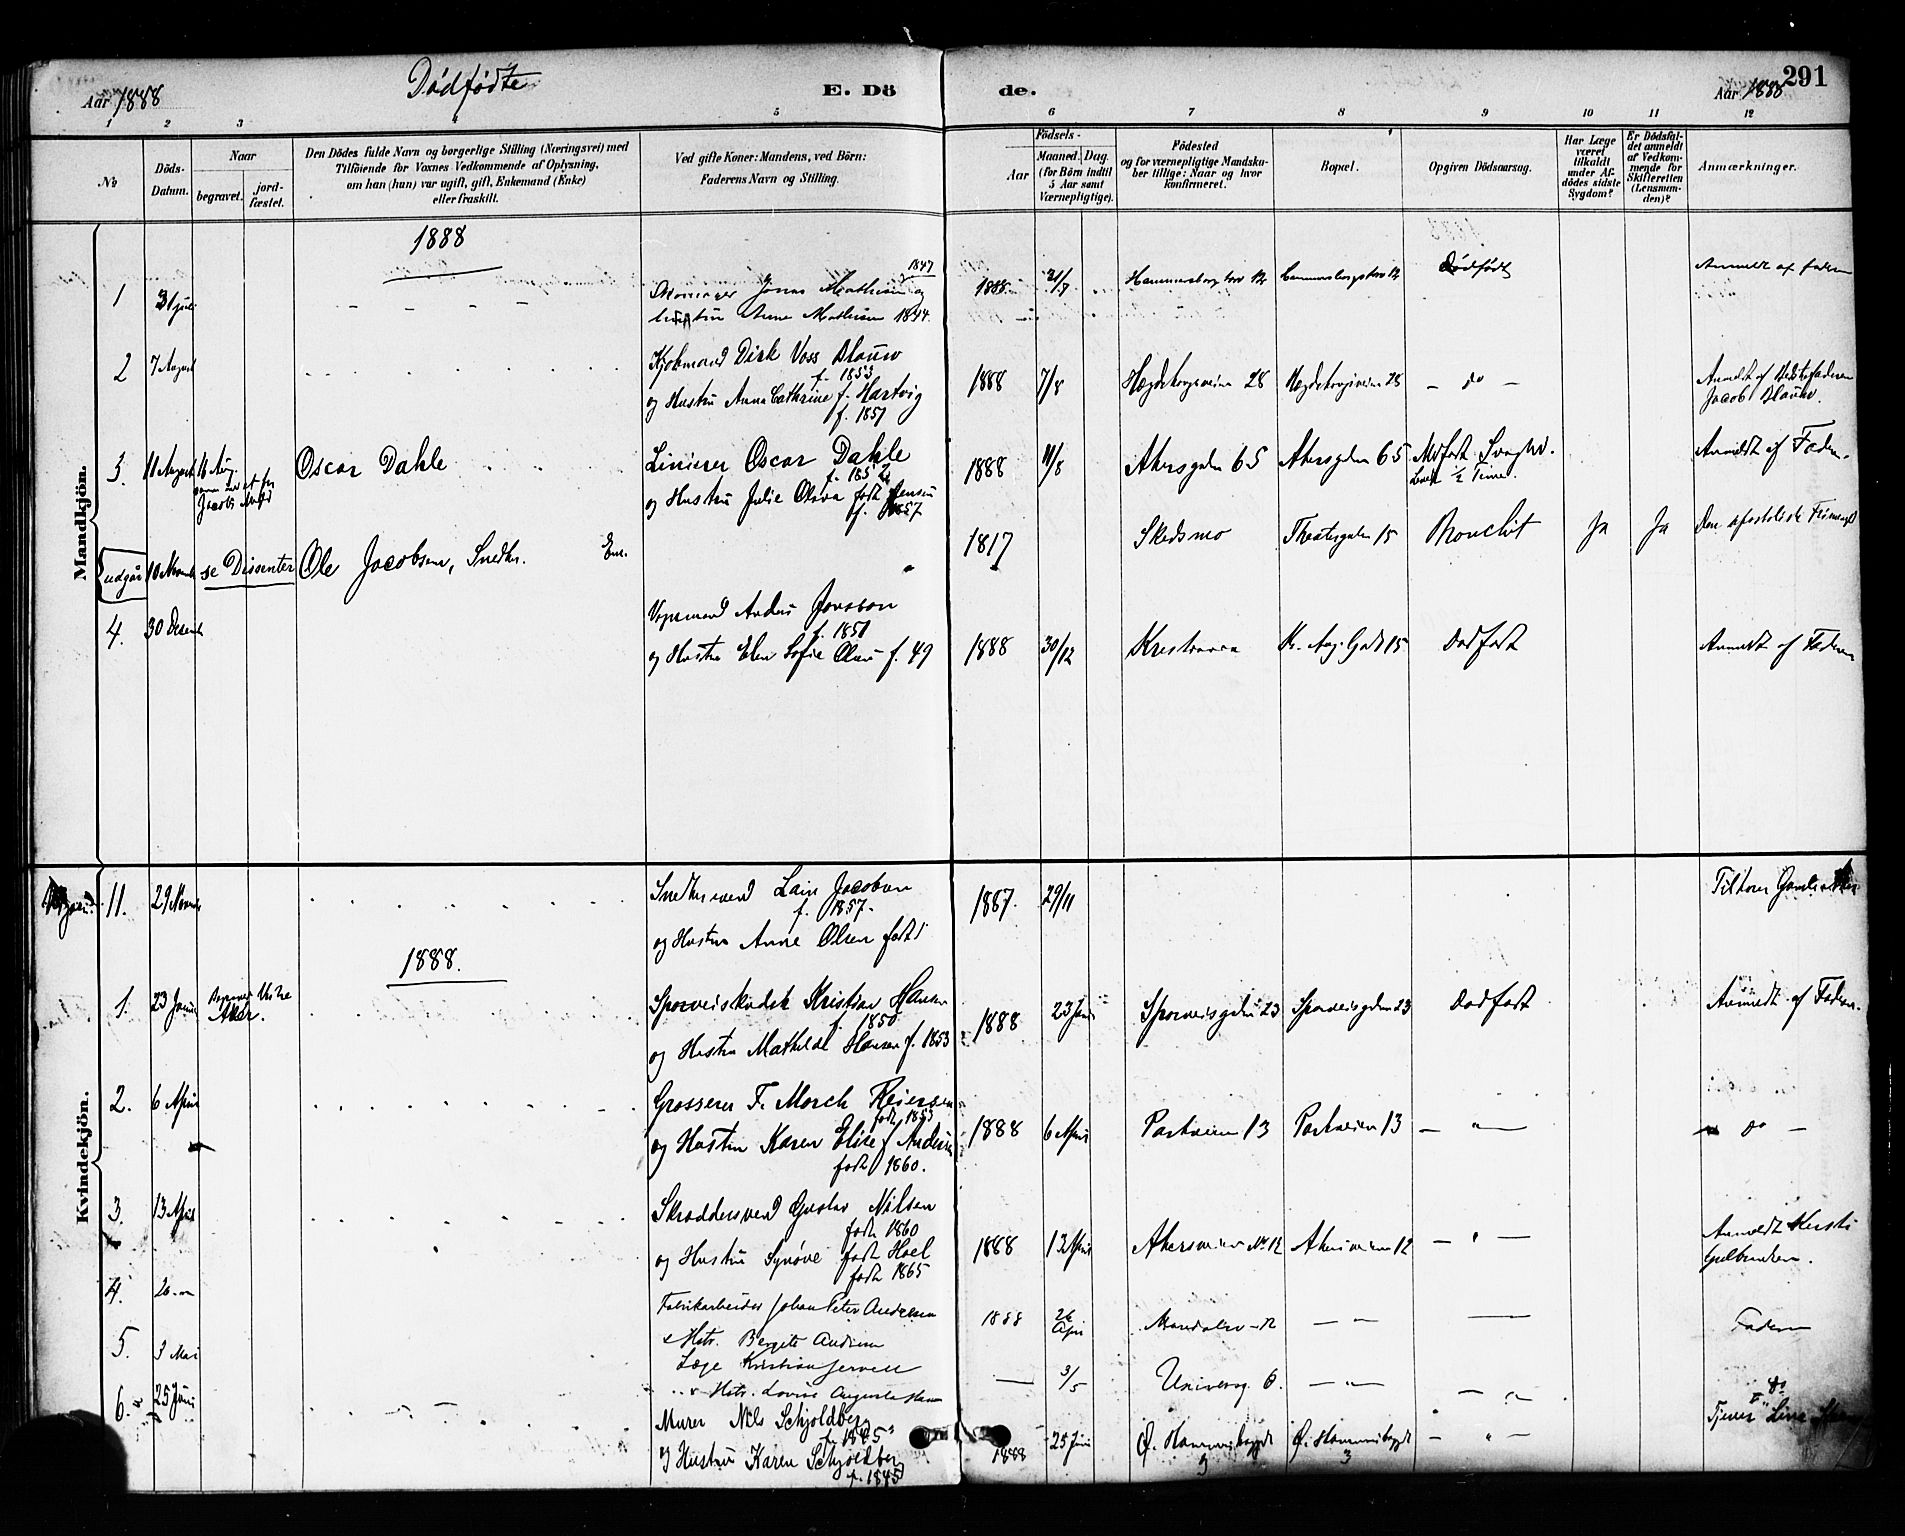 Aar 1888
Dødfødte
E. Dö
de.
Aar 1888
291
1 2 3 4 5 6 7 8 9 10 11 12
No
Döds-
Datum.
Naar
begravet.
jord-
fæstet.
Den Dödes fulde Navn og borgerlige Stilling (Næringsvei) med
Tilföiende for Voxnes Vedkommende af Oplysning,
om han (hun) var ugift, gift, Enkemand (Enke)
eller fraskilt.
Ved gifte Koner: Mandens, ved Börn:
Faderens Navn og Stilling.
Födsels-
Aar
Maaned.
Dag.
(for Börn indtil
5 Aar samt
Værnepligtige).
Födested
og for værnepligtige Mandsku-
ber tillige: Naar og hvor
konfirmeret.
Bopæl.
Opgiven Dödsaarsag.
Har Læge
været
tilkaldt
under Af-
dödes sidste
Sygdom?
Er Dödsfal-
det anmeldt
af Vedkom-
mende for
Skifteretten
(Lensman-
den)?
Anmærkninger.
Mandkjön.
1888
1 31 Juli
Jonas Mathisen og 1847
Hustru Anna Mathisen 1844.
1888 31/7 Hammersborg torv 12 Hammersborgtorv 12 Dødfødt Anmeldt af faderen
2 7 August
Kjøbmand Dirk Voss Blauw
f. 1853
og Hustru Anna Cathrine f. Hartvig
f. 1857
1888 7/8 Hægdehaugsveien 28 Hægdehaugsveien 28 – do –
Anmeldt af
Jacob Blauw.
3. 11 August 16 Aug.
Oscar Dahle
Oscar Dahle
f. 1852
og Hustru Julie Olava født Jensen
f. 1857
1888 11/8 Akersgaden 65 Akersgaden 65
Levet 1/2 Time. Anmeldt af Faderen.
udgår 10 Novemb se Dissenter Ole Jacobsen, Snedkr. Em.
1817 Skedsmo Theatergaden 15 Bronchit Ja Ja Den apostolisk
4. 30 Decemb
Vognmand Anders Jonsson
f. 1851
og Hustru Elen Sofie Olsen f. 49
1888 30/12 Kristiania Kr. Aug. Gade 15 Dødfødt Anmeldt af Faderen
Kvindekjön.
11. 29 Novemb
Snedkersvend Lars Jacobsen
f. 1857.
og Hustru Anne Olsen født
1887. 29/11
1888.
1. 23 Januar Vestre
Aker.
Sporveiskudsk Kristian Hansen
f. 1850
og Hustru Mathilde Hansen f. 1853
1888 23 Jan Sporveisgaden 23 Sporveisgaden 23 Dødfødt Anmeldt af Faderen.
2. 6 April
Grosserer F. Morch Reiersen
født 1853
og Hustru Karen Elise f. Andersen
født 1860.
1888 6 April Parkveien 13 Parkveien 13 – " – – do –
3. 13 April
Skræddersvend Gustav Nilsen
født 1860
og Hustru Synøve født Hoel
født 1865
1888 13 April Akersveien No. 12 Akersveien 12 – " –
Anmeldt
4. 26 – "
Fabrikarbeider Johan Peter Andersen
& Hstr. Bergete Andersen
1888 26 Apri – " – Faderen
5. 3 Mai
Læge Kristian Jervell
Hstr. Lovise Augusta
– 3/5 Universg. 6. – " – – " – do
6. 25 Juni
Murer Nils Schjoldberg
f. 1845
og Hustru Karen Schjoldberg
f. 1845
1888 25 Juni Ø. 3 Ø. 3 – " –